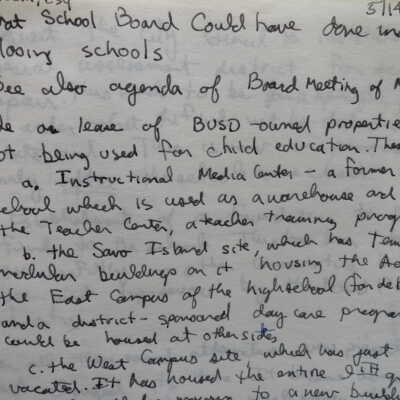 , Esq 5/14
at School Board Could have done in
losing schools
See also agenda of Board Meeting of M
le or lease of BUSD-owned propertie
ot being used for child education. These
a. Instructional Media Center - a former
chool which is used as a warehouse and
the Teacher Center, a teacher training prog
b. the Savo Island site, which has Tem
modular buildings on it housing the Ad
the East Campus of the highschool (for de
and a district-sponsored day care program
could be housed at other sites
c. the West Campus site, which has just
vacated. It has housed the entire 9th g
to a new build